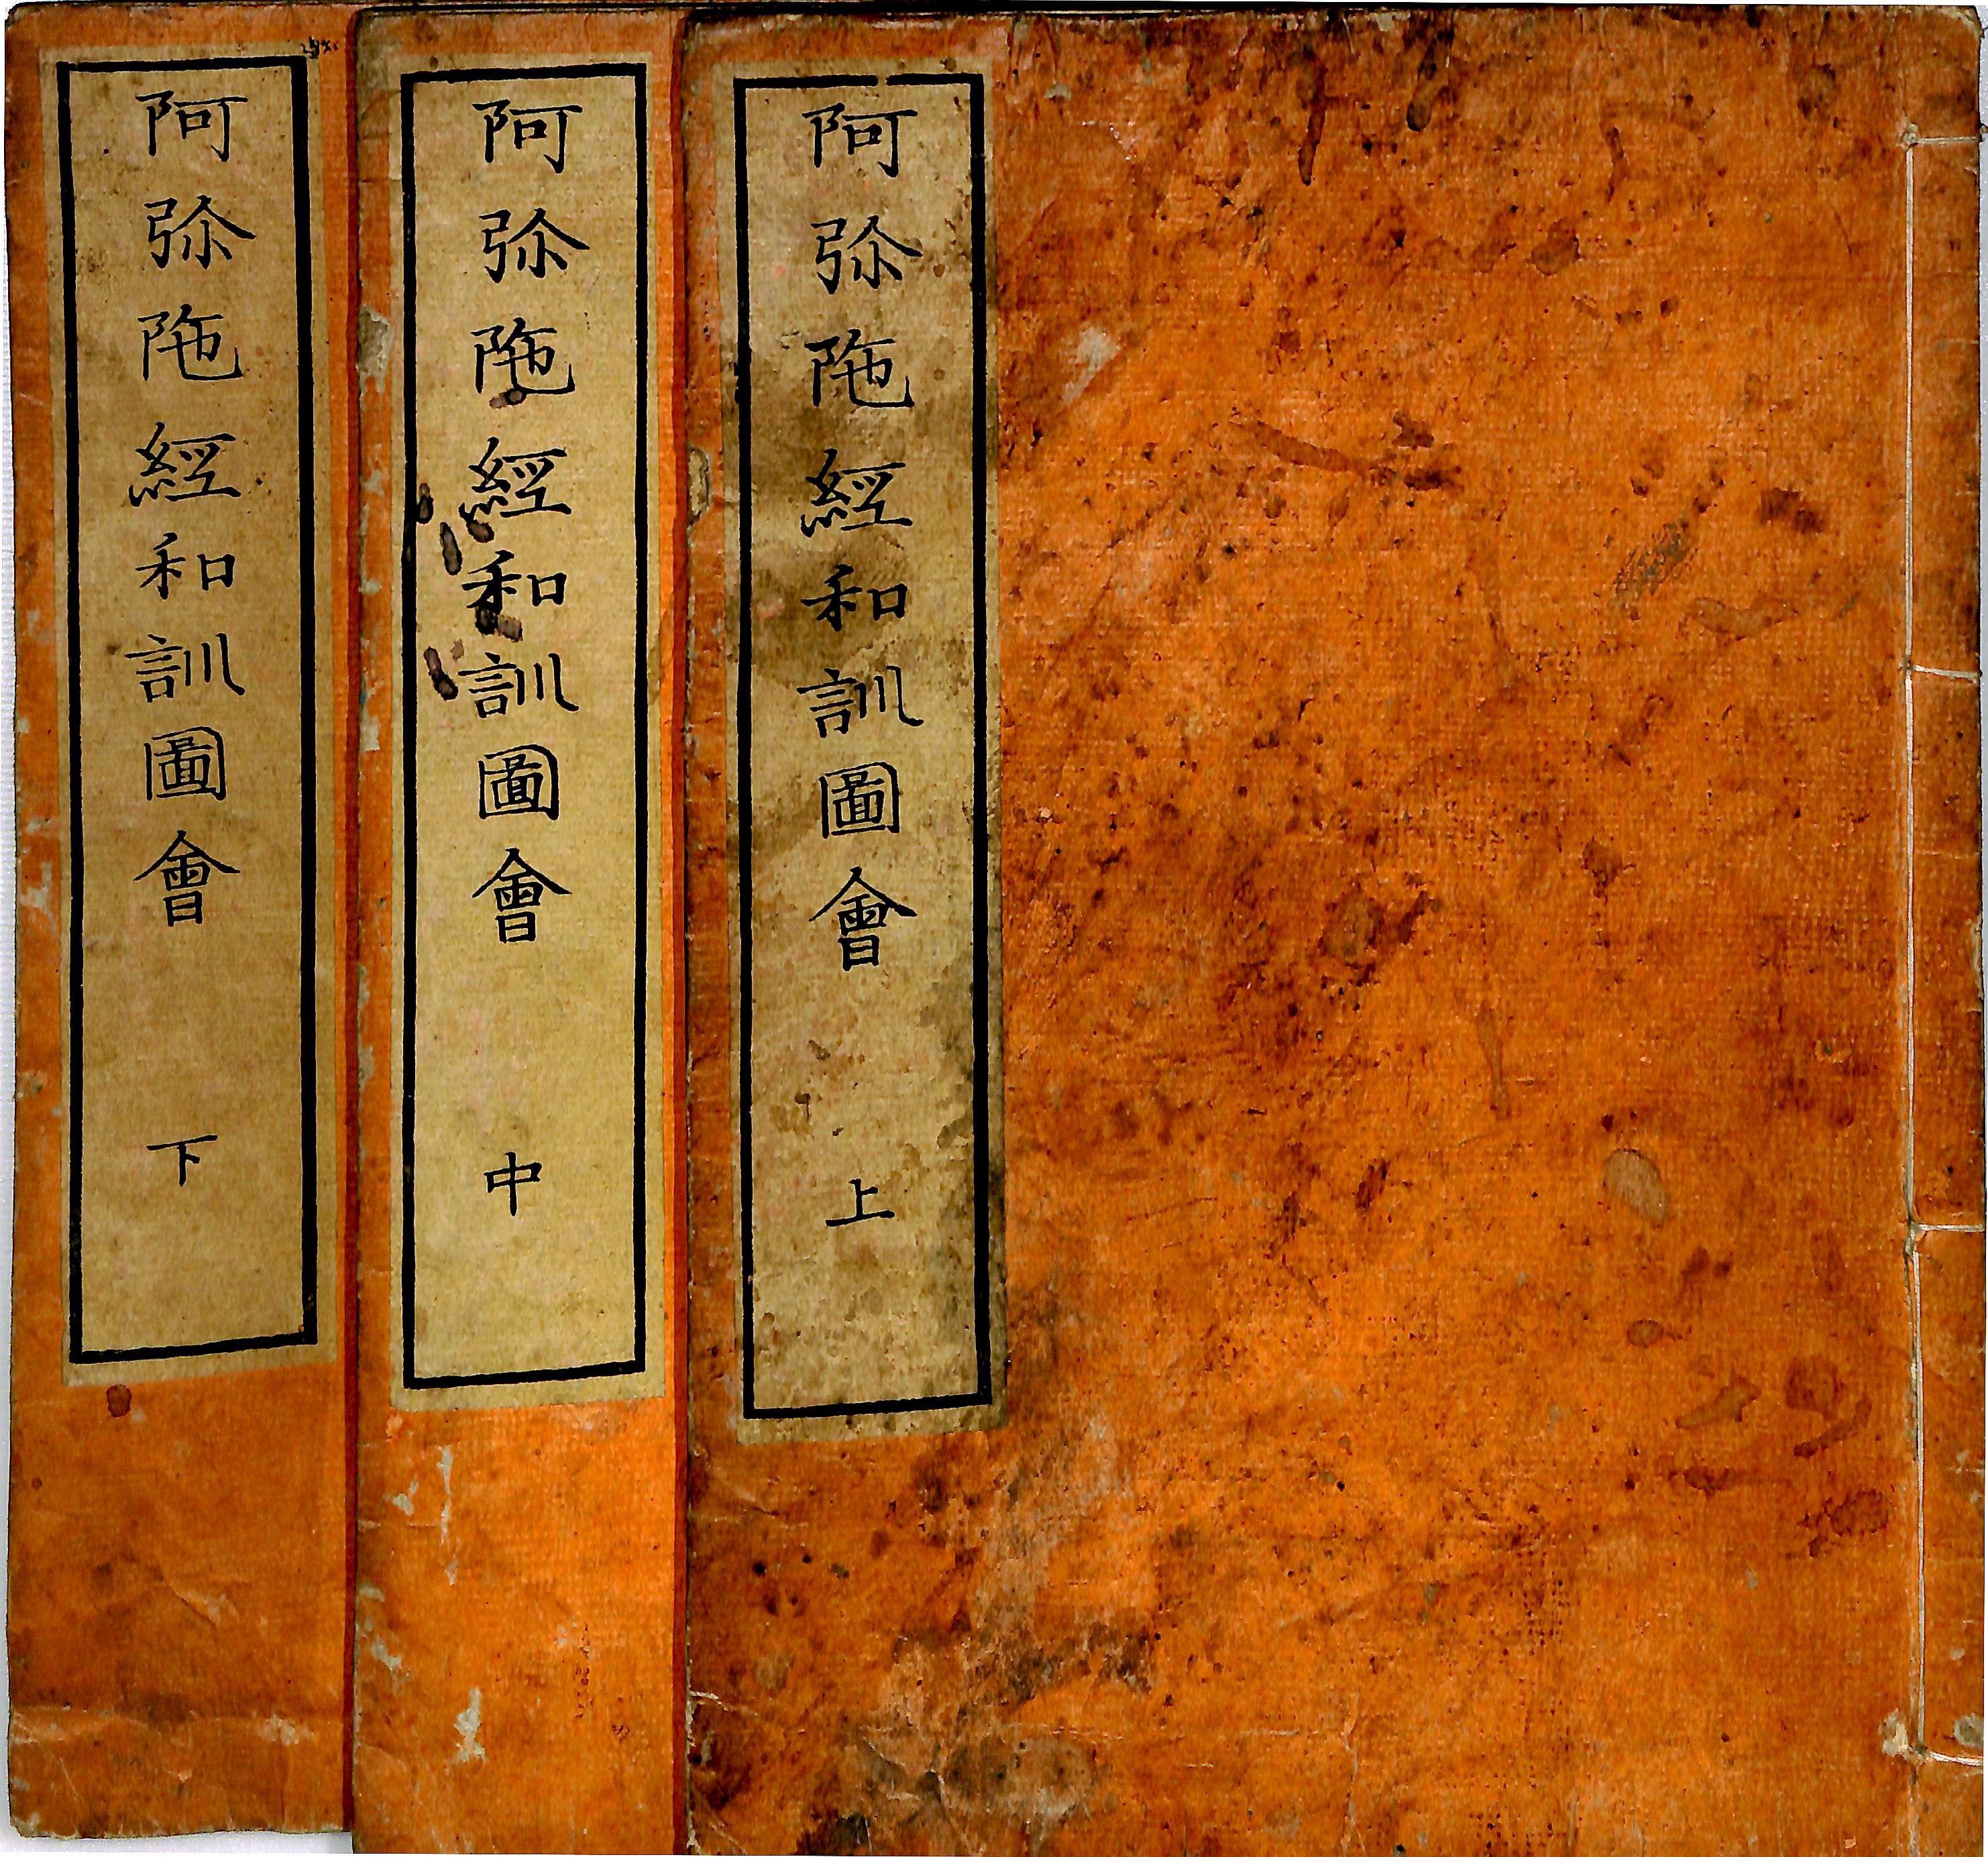 阿弥陁經和訓圖會 上
阿弥陁經和訓圖會 中
阿弥陁經和訓圖會 下